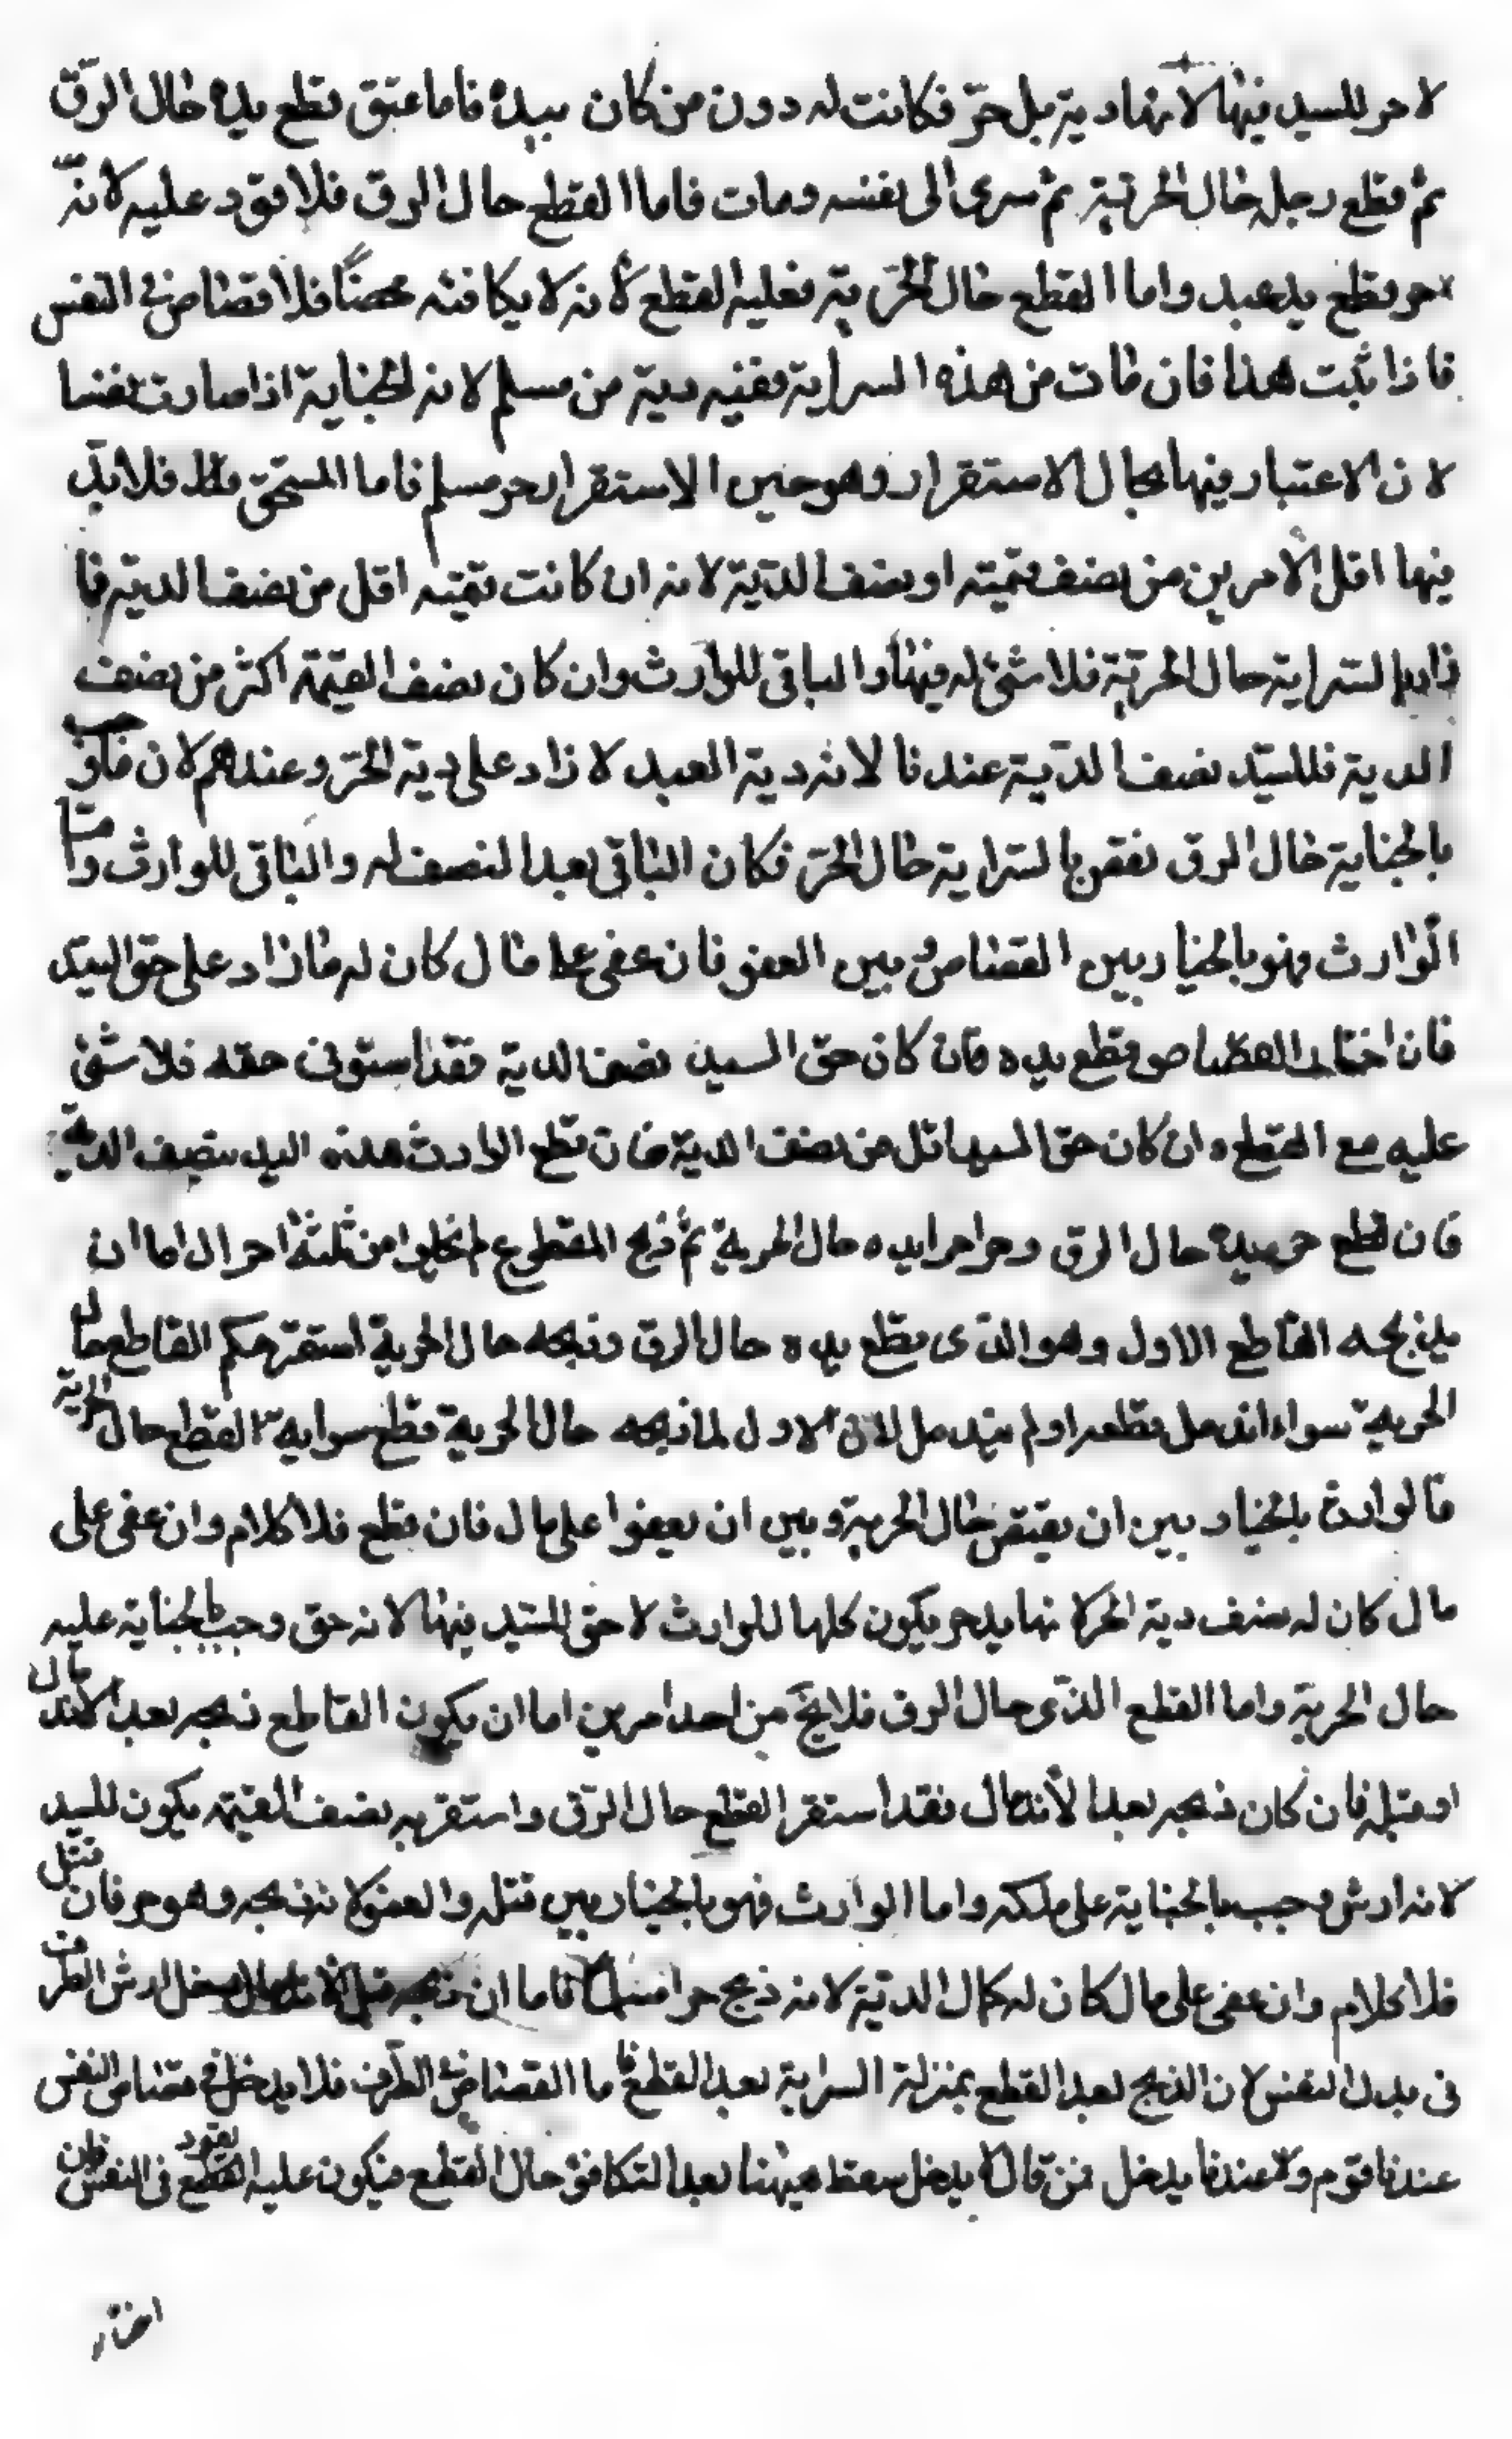 لا حر للسيد فيها لانها دية مل حرّ فكانت له دون من كان سيده فاما عتق قطع يده حال الرقّ
ثم قطع رجله حال الحرّية ثم سرى الى نفسه ومات فاما القطع حال الرق فلا قود عليه لانّه
حر قطع يد عبد واما القطع حال الحرّية فعليه القطع لانه لا يكافئه محصناً فلا قصاص في النفس
فاذا ثبت هذا فان مات من هذه السراية ففيه دية من مسلم لانه الجناية اذا صارت نفسا
لان الاعتبار فيها بحال الاستقرار وهو حين الاستقرار حر مسلم فاما المستحق فلا بدّ
فيها اقل الامرين من نصف قيمته او نصف الديّة لانه ان كانت قيمته اقل من نصف الدية فا
السّراية حال الحريّة فلا شئ له فيها والباقي للوارث وان كان نصف القيمة اكثر من نصف
الدية فللسيّد نصف الديّة عندنا لانه دية العبد لا زاد على دية الحرّ وعندهم لان ما وجب
بالجناية حال الرق نقص بالسّراية حال الحرّ فكان الباقي بعد النصف له والباقي للوارث واما
الوارث فهو بالخيار بين القصاص وبين العفو فان عفى على مال كان له ما زاد على حق السيّد
فان اختار القصاص وقطع يده فان كان حق السيد نصف الدية فقد استوفى حقه فلا شئ
عليه مع القطع وان كان حق السيد اقل من نصف الدية فان قطع الوارث هذه اليد بنصف الدية
فان قطع حر يده حال الرق وحر اخر ايده حال الحرية ثم ذبح المقطوع لم يخلوا من ثلثة احوال اما ان
يذبحه القاطع الاول وهو الذي قطع يده حال الرق وذبحه حال الحرية استقر حكم القاطع حال
الحرية سواء اندمل قطعه او لم يندمل لان الاول لما ذبحه حال الحرية قطع سراية القطع حال الحرية
فالوارث بالخيار بين ان يقتص حال الحرية وبين ان يعفوا على مال فان قطع فلا كلام وان عفى على
مال كان له نصف دية الحر لانها يد حر يكون كلها للوارث لا حق للسّيد فيها لانه حق وجب بالجناية عليه
حال الحرية واما القطع الذّي حال الرق فلا يخ من احد امرين اما ان يكون القاطع ذبحه بعد الاندمال
او قبله فان كان ذبحه بعد الاندمال فقد استقر القطع حال الرّق واستقر به نصف القيمة يكون للسيد
لانه ارش وجب بالجناية على ملكه واما الوارث فهو بالخيار بين قتله والعفو لانه ذبحه وهو حر فان قتل
فلا كلام وان عفى على مال كان له كمال الديّة لانه ذبح حرا فاما ان ذبحه قبل الاندمال دخل ارش الطرف
في بدل النفس لان الذبح بعد القطع بمنزلة السراية بعد القطع فاما القصاص في الطّرف فلا يدخل في قصاص النفس
عند قوم وعندنا يدخل فمن قال لا يدخل سقط هيهنا بعد التكافؤ حال القطع فيكون عليه القود في النفس فان
اختار